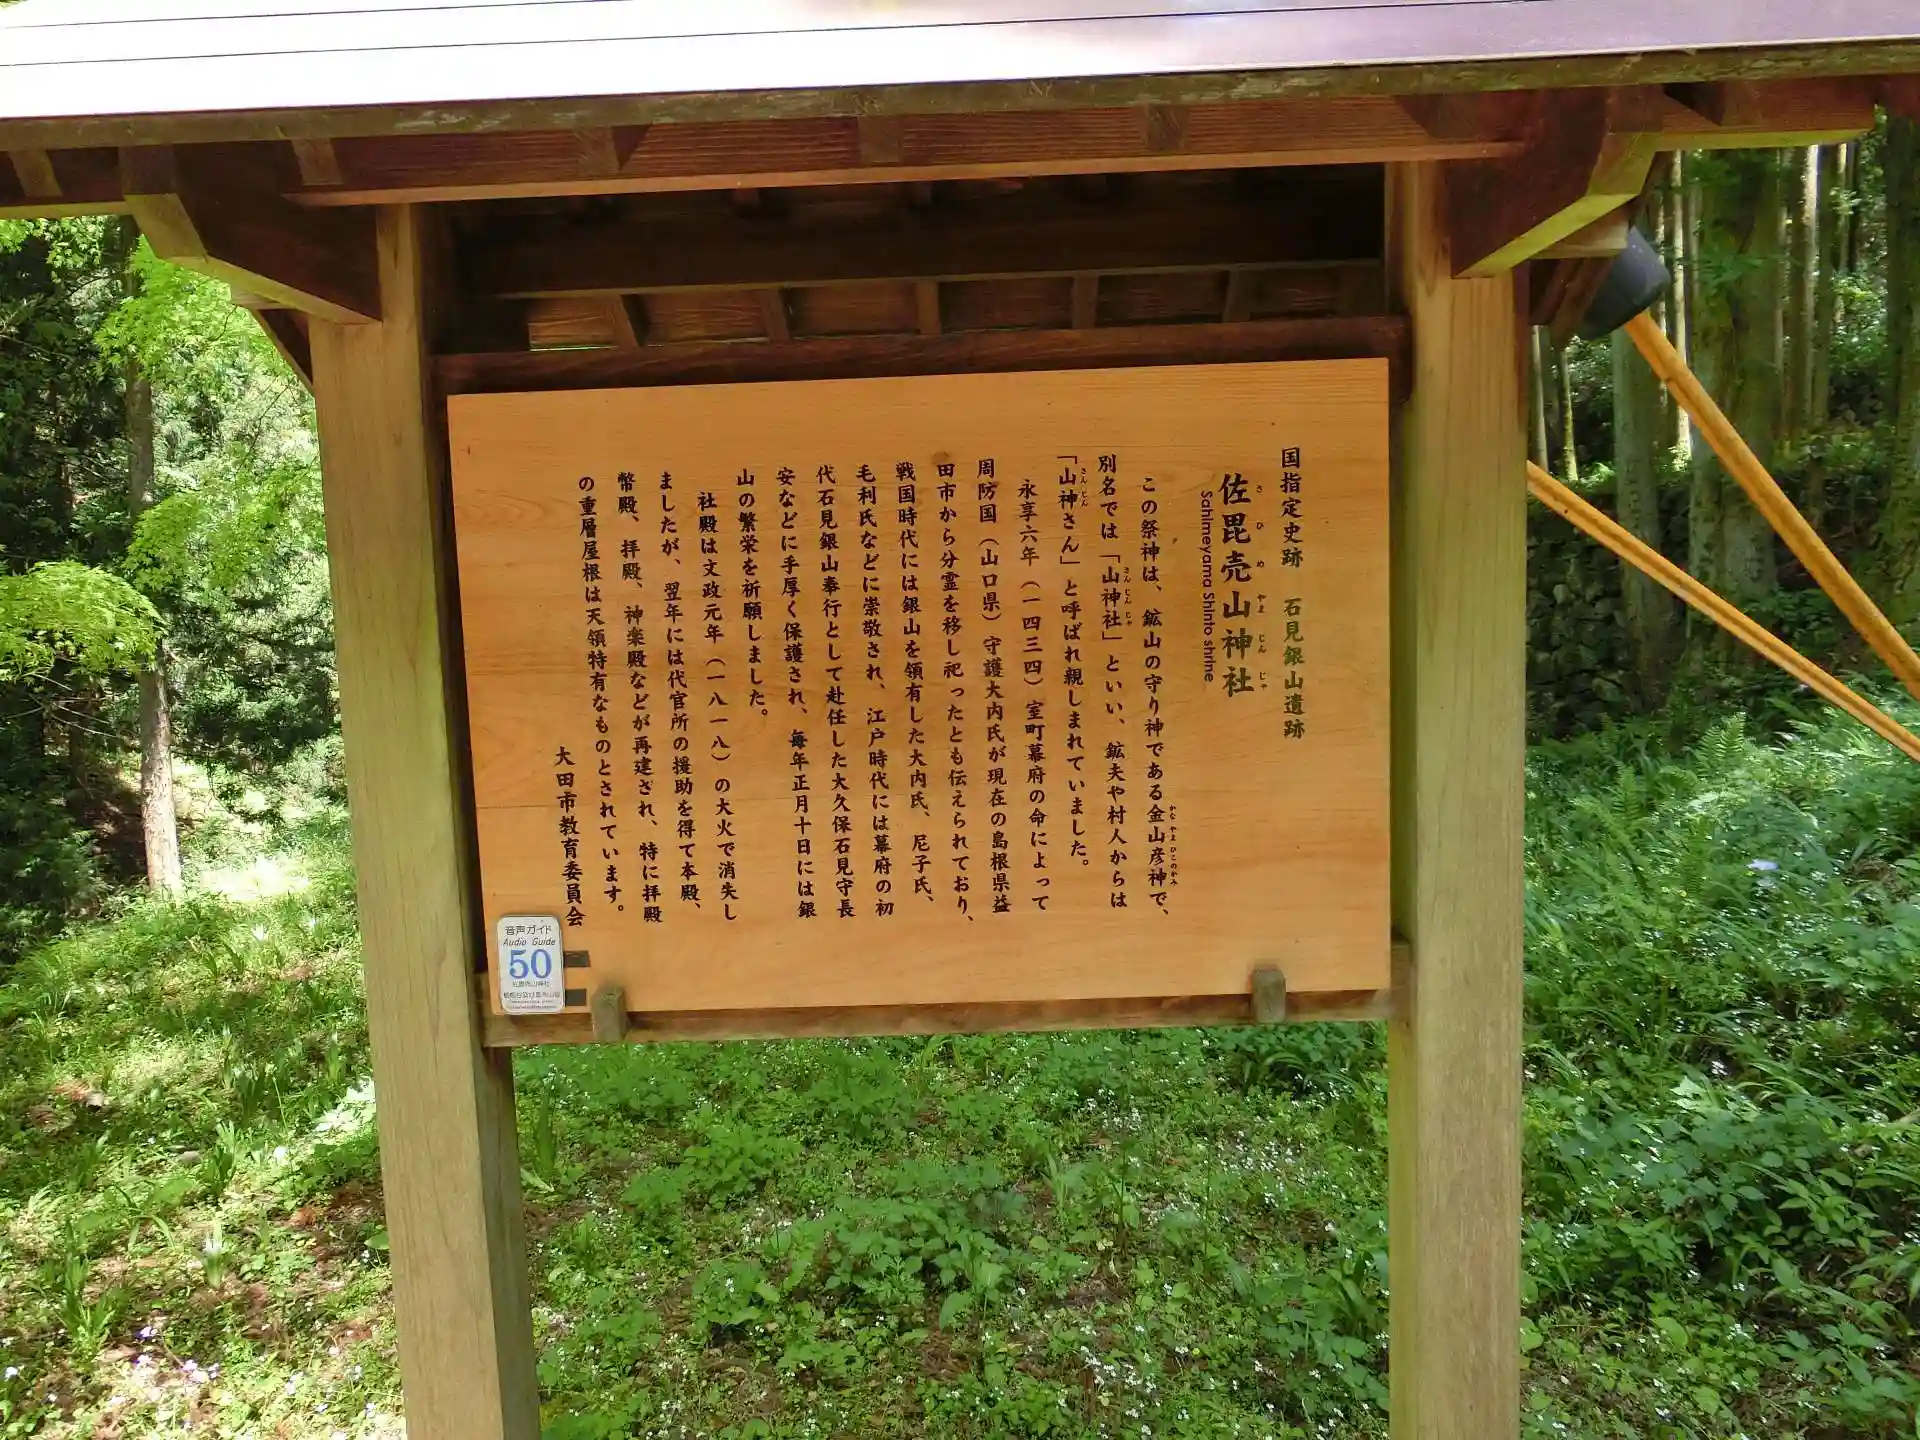 国指定史跡　石見銀山遺跡
佐毘売山神社
さひめやまじんじゃ
Sahimeyama Shinto shrine
この祭神は、鉱山の守り神である金山彦神で、
かなやまひこのかみ
別名では「山神社」といい、鉱夫や村人からは
さんじんじゃ
「山神さん」と呼ばれ親しまれていました。
さんじん
永享六年（一四三四）室町幕府の命によって
周防国（山口県）守護大内氏が現在の島根県益
田市から分霊を移し祀ったとも伝えられており、
戦国時代には銀山を領有した大内氏、尼子氏、
毛利氏などに崇敬され、江戸時代には幕府の初
代石見銀山奉行として赴任した大久保石見守長
安などに手厚く保護され、毎年正月十日には銀
山の繁栄を祈願しました。
社殿は文政元年（一八一八）の大火で消失し
ましたが、翌年には代官所の援助を得て本殿、
幣殿、拝殿、神楽殿などが再建され、特に拝殿
の重層屋根は天領特有なものとされています。
大田市教育委員会
音声ガイド
Audio Guide
50